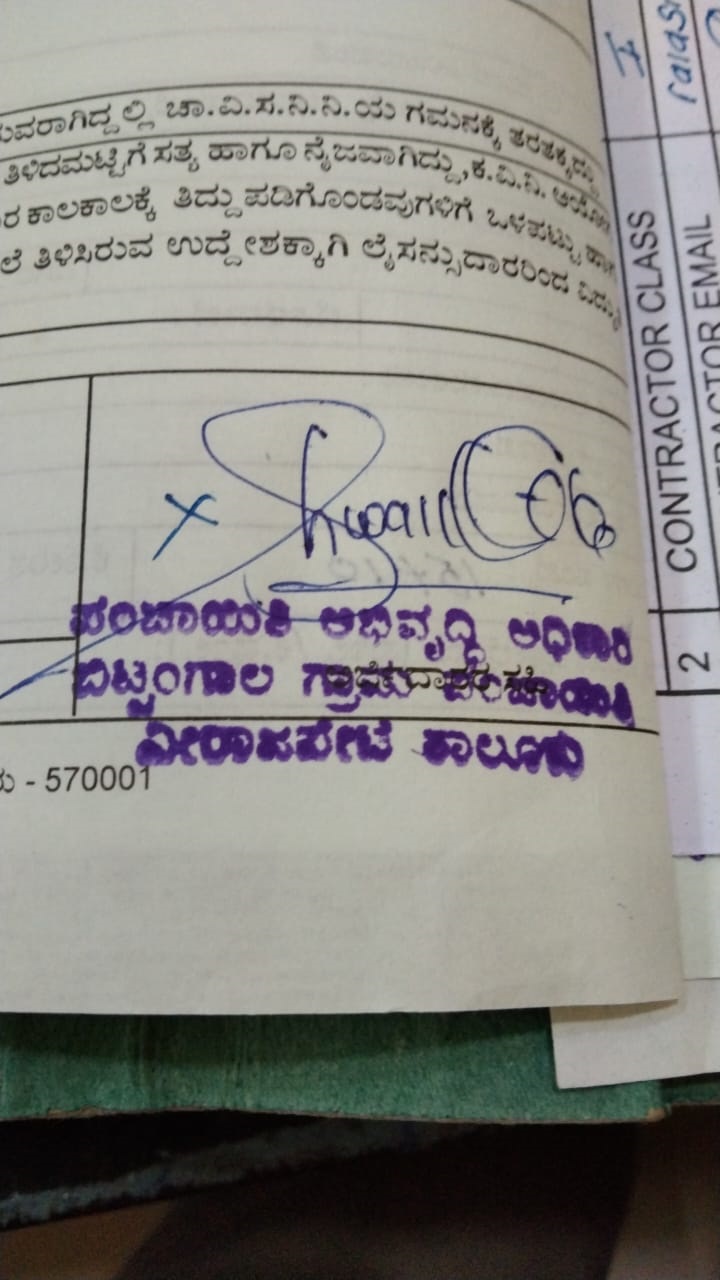 ುವರಾಗಿದ್ದಲ್ಲಿ ಚಾ.ವಿ.ಸ.ನಿ.ನಿ.ಯ ಗಮನಕ್ಕೆ ತರತಕ್ಕದ್ದು
ತಿಳಿದಮಟ್ಟಿಗೆ ಸತ್ಯ ಹಾಗೂ ನೈಜವಾಗಿದ್ದು, ಕ.ವಿ.ನಿ. ಆಯೋಗ
ರ ಕಾಲಕಾಲಕ್ಕೆ ತಿದ್ದುಪಡಿಗೊಂಡವುಗಳಿಗೆ ಒಳಪಟ್ಟು ಹಾಗೂ
ಲೆ ತಿಳಿಸಿರುವ ಉದ್ದೇಶಕ್ಕಾಗಿ ಲೈಸನ್ಸುದಾರರಿಂದ ವಿದ್ಯು
x
ಪಂಚಾಯಿತಿ ಅಭಿವೃದ್ಧಿ ಅಧಿಕಾರಿ
ಬಿಟ್ಟಂಗಾಲ ಗ್ರಾಮ ಪಂಚಾಯಿತಿ
ವೀರಾಜಪೇಟೆ ತಾಲೂಕು
ು - 570001
2 CONTRACTOR CLASS I
CONTRACTOR EMAIL